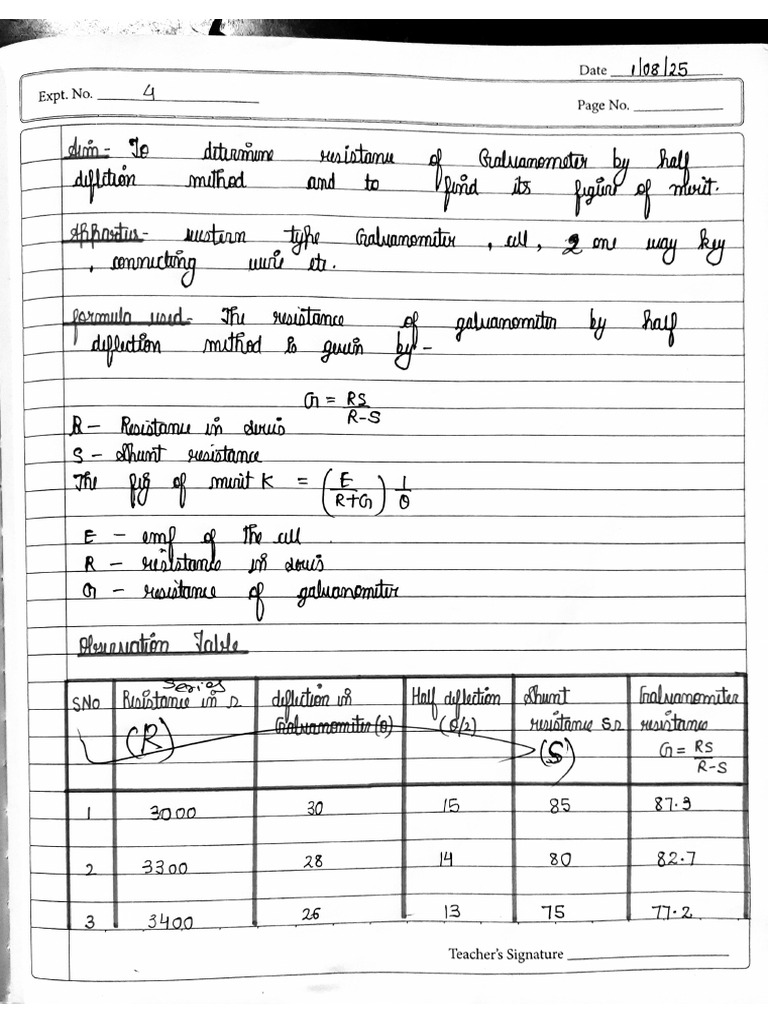 Date 1/08/25
Expt. No. 4
Page No.
Aim- To determine resistance of Galvanometer by half
defletion method and to find its figure of merit.
Apparatus- western type Galvanometer, cell, 2 one way key
, connecting wire etc.
formula used- The resistance of galvanometer by half
deflection method is given by-
G = RS
R-S
R - Resistance in series
S - Shunt resistance
The fig of merit K = (E/R+G) 1/θ
E - emf of the cell.
R - resistance in series
G - resistance of galvanometer
Observation Table
SNo Resistance in series Ω (R) deflection in Galvanometer (θ) Half deflection (θ/2) Shunt resistance S Ω (S) Galvanometer resistance G = RS/R-S
1 3000 30 15 85 87.3
2 3300 28 14 80 82.7
3 3400 26 13 75 77.2
Teacher's Signature